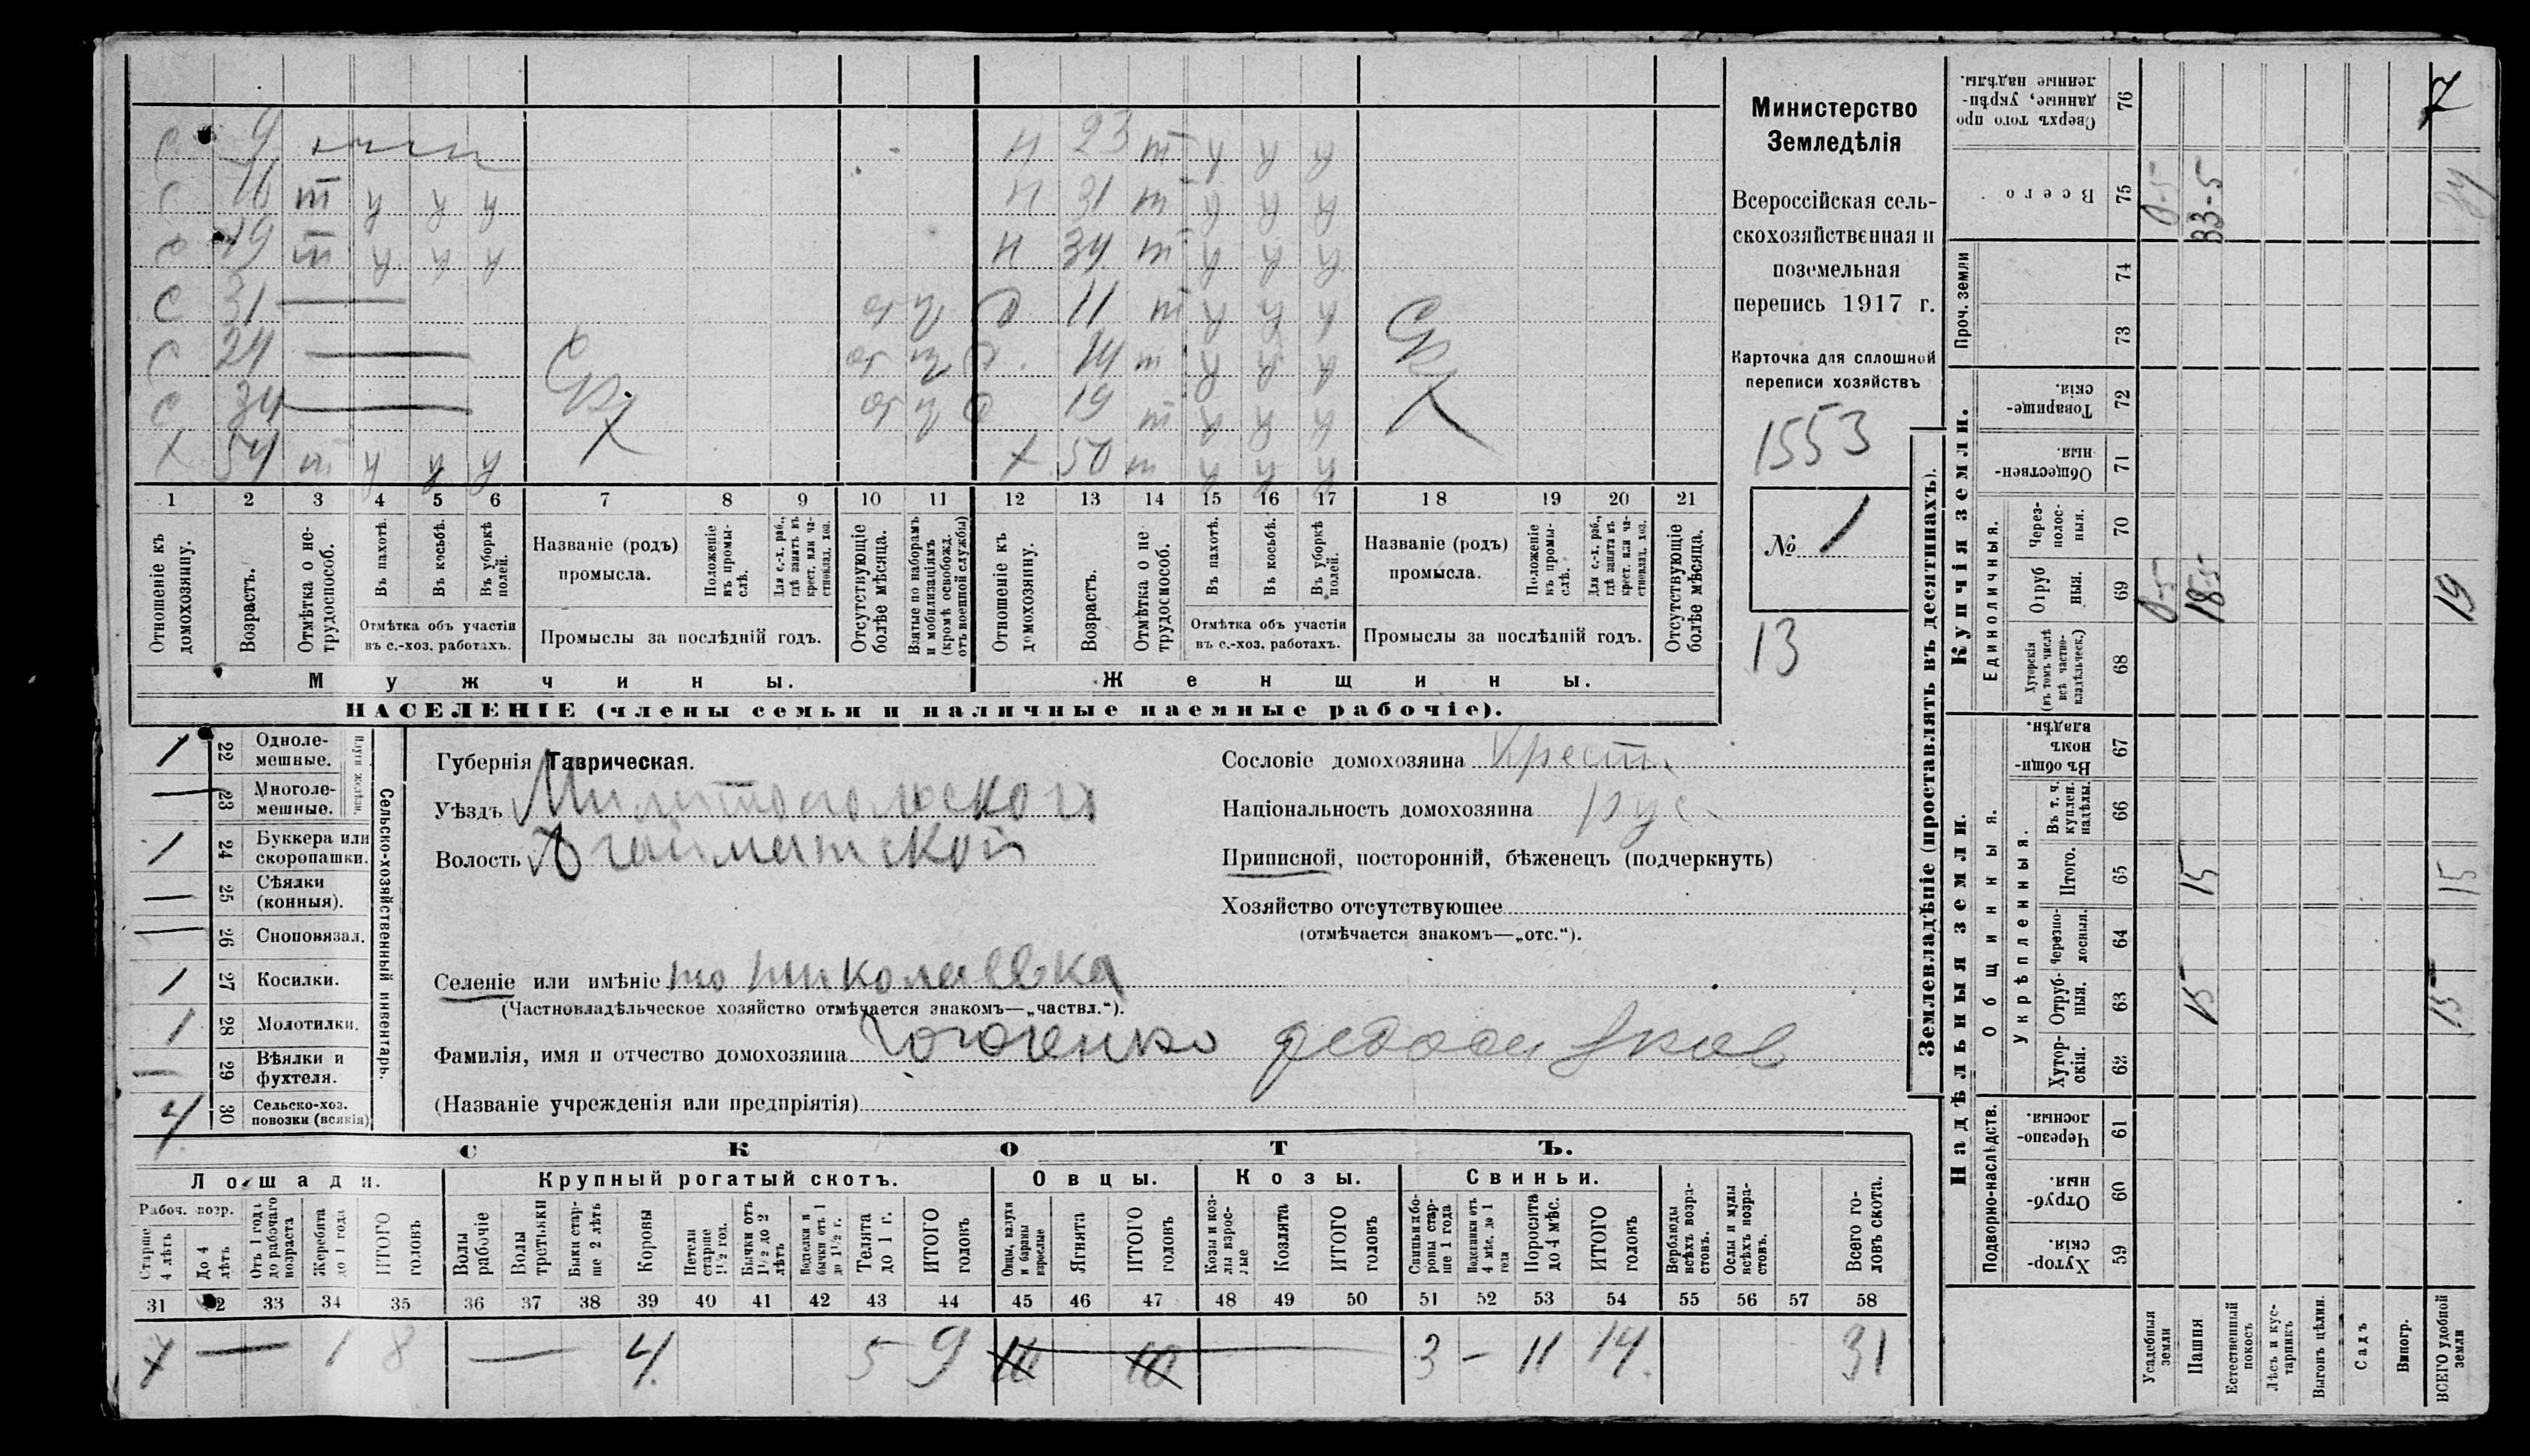 С 9
С 16 т у у у
С 19 т у у у
С 31 —
С 24 —
С 34 —
Х 54 т у у у
Н 23 т у у у
Н 31 т у у у
Н 34 т у у у
11 т у у у
14 т у у у
19 т у у у
Х 50 т у у у
1 2 3 4 5 6 7 8 9 10 11 12 13 14 15 16 17 18 19 20 21
Отношеніе къ домохозяину.
Возрастъ.
Отмѣтка о нетрудоспособ.
Въ пахотѣ.
Въ косьбѣ.
Въ уборкѣ полей.
Отмѣтка объ участіи въ с.-хоз. работахъ.
Названіе (родъ) промысла.
Положеніе въ промыслѣ.
Для с.-х. раб., гдѣ занятъ въ крест. или частновлад. хоз.
Промыслы за послѣдній годъ.
Отсутствующіе болѣе мѣсяца.
Взятые по наборамъ и мобилизаціямъ (кромѣ освобожд. отъ военной службы)
Отношеніе къ домохозяину.
Возрастъ.
Отмѣтка о не трудоспособ.
Въ пахотѣ.
Въ косьбѣ.
Въ уборкѣ полей.
Отмѣтка объ участіи въ с.-хоз. работахъ.
Названіе (родъ) промысла.
Положеніе въ промыслѣ.
Для с.-х. раб., гдѣ занята въ крест. или частновлад. хоз.
Промыслы за послѣдній годъ.
Отсутствующіе болѣе мѣсяца.
Мужчины.
Женщины.
НАСЕЛЕНІЕ (члены семьи и наличные наемные рабочіе).
Министерство
Земледѣлія
Всероссійская сель-
скохозяйственная и
поземельная
перепись 1917 г.
Карточка для сплошной
переписи хозяйствъ
1553
№ 1
13
1 22 Одноле-мешные.
— 23 Многоле-мешные.
1 24 Буккера или скоропашки.
— 25 Сѣялки (конныя).
— 26 Сноповязал.
1 27 Косилки.
1 28 Молотилки.
— 29 Вѣялки и фухтеля.
4 30 Сельско-хоз. повозки (всякія)
Сельско-хозяйственный инвентарь.
Губернія Таврическая.
Уѣздъ Милитопольскаго
Волость Агайманской
Селеніе или имѣніе Николаевка
(Частновладѣльческое хозяйство отмѣчается знакомъ—„частвл.“).
Фамилія, имя и отчество домохозяина
(Названіе учрежденія или предпріятія)
Сословіе домохозяина Крест.
Національность домохозяина рус.
Приписной, посторонній, бѣженецъ (подчеркнуть)
Хозяйство отсутствующее
(отмѣчается знакомъ—„отс.“).
СКОТЪ.
Лошади. Крупный рогатый скотъ. Овцы. Козы. Свиньи.
Рабоч. возр.
Старше 4 лѣтъ
До 4 лѣтъ
Отъ 1 года до рабочаго возраста
Жеребята до 1 года
ИТОГО головъ
Волы рабочіе
Волы третьяки
Быки старше 2 лѣтъ
Коровы
Нетели старше 1½ год.
Бычки отъ 1½ до 2 лѣтъ
Подтелки и бычки отъ 1 до 1½ г.
Телята до 1 г.
ИТОГО головъ
Овцы, валухи и бараны взрослые
Ягнята
ИТОГО головъ
Козы и козлы взрослые
Козлята
ИТОГО головъ
Свиньи и боровы старше 1 года
Подсвинки отъ 4 мѣс. до 1 года
Поросята до 4 мѣс.
ИТОГО головъ
Верблюды всѣхъ возрастовъ.
Ослы и мулы всѣхъ возрастовъ.
Всего головъ скота.
31 33 34 35 36 37 38 39 40 41 42 43 44 45 46 47 48 49 50 51 52 53 54 55 56 57 58
7 — 1 8 — 4 5 9 10 10 3 — 11 14 31
Землевладѣніе (проставлять въ десятинахъ).
Надѣльныя земли.
Купчія земли.
Подворно-наслѣдств.
Общинныя.
Укрѣпленныя.
Единоличныя.
Проч. земли
Сверхъ того проданные, укрѣпленные надѣлы. 76 7
Всего 75 0-5 33-5 34
74
73
Товарищескія. 72
Общественныя. 71
Чрезполосныя. 70
Отрубныя. 69 0-5 18-5 19
Хуторскія (въ томъ числѣ всѣ частновладѣльческ.) 68
Въ общинномъ владѣн. 67
Въ т. ч. куплен. надѣлы. 66
Итого. 65 15 15
Черезполосныя. 64
Отрубныя. 63 15 15
Хуторскія. 62
Черезполосныя. 61
Отрубныя. 60
Хуторскія. 59
Усадебныя земли
Пашня
Естественный покосъ
Лѣсъ и кустарникъ
Выгонъ цѣлин.
Садъ
Виногр.
ВСЕГО удобной земли